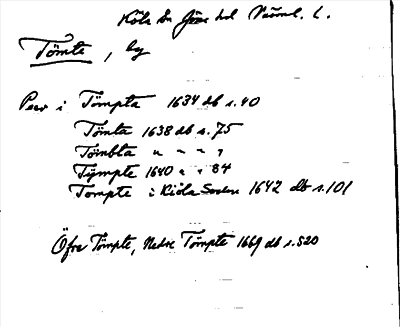 Köla sn Jösse hd Värml. l.
Tömte, by
Perv i Tömpta 1634 db s. 40
Tömta 1638 db s. 75
Tömbta " " " "
Tympte 1640 " " 84
Tompte i Kiöla Soden 1642 db s. 101
Öfre Tömpte, Nedre Tömpte 1669 db s. 520